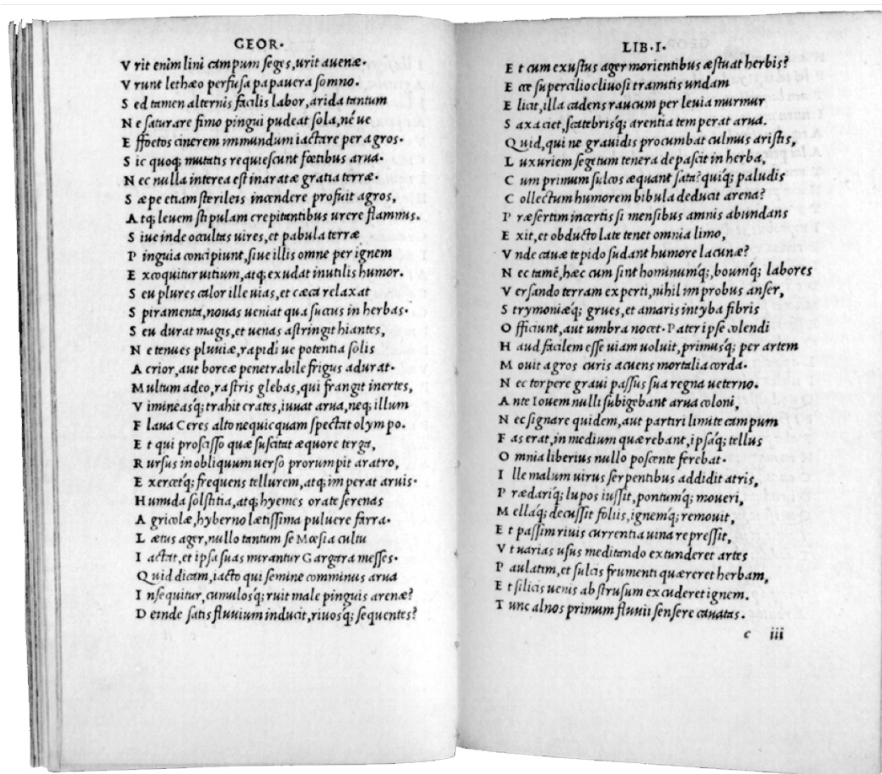 GEOR.
V rit enim lini campum seges, urit auenæ.
V runt lethæo perfusa papauera somno.
S ed tamen alternis facilis labor, arida tantum
N e saturare fimo pingui pudeat sola, né ue
E ffoetos cinerem immundum iactare per agros.
S ic quoq; mutatis requiescunt foetibus arua.
N ec nulla interea est inaratæ gratia terræ.
S æpe etiam sterileis incendere profuit agros,
A tq; leuem stipulam crepitantibus urere flammis.
S iue inde occultas uires, et pabula terræ
P inguia concipiunt, siue illis omne per ignem
E xcoquitur uitium, atq; exudat inutilis humor.
S eu plures calor ille uias, et cæca relaxat
S piramenta, nouas ueniat qua succus in herbas.
S eu durat magis, et uenas astringit hiantes,
N e tenues pluuiæ, rapidi ue potentia solis
A crior, aut boreæ penetrabile frigus adurat.
M ultum adeo, rastris glebas, qui frangit inertes,
V imineasq́; trahit crates, iuuat arua, neq; illum
F laua Ceres alto nequicquam spectat olympo.
E t qui proscisso quæ suscitat æquore terga,
R ursus in obliquum uerso prorumpit aratro,
E xercetq́; frequens tellurem, atq; imperat aruis.
H umida solstitia, atq; hyemes orate serenas
A gricolæ, hyberno lætissima puluere farra.
L ætus ager, nullo tantum se Moesia cultu
I actat, et ipsa suas mirantur Gargara messes.
Q uid dicam, iacto qui semine comminus arua
I nsequitur, cumulosq́; ruit male pinguis arenæ?
D einde satis fluuium inducit, riuosq́; sequentes?
LIB.I.
E t cum exustus ager morientibus æstuat herbis?
E cce supercilio cliuosi tramitis undam
E licit, illa cadens raucum per leuia murmur
S axa ciet, scatebrisq́; arentia temperat arua.
Q uid, qui ne grauidis procumbat culmus aristis,
L uxuriem segetum tenera depascit in herba,
C um primum sulcos æquant sata? quiq́; paludis
C ollectum humorem bibula deducit arena?
P ræsertim incertis si mensibus amnis abundans
E xit, et obducto late tenet omnia limo,
V nde cauæ tepido sudant humore lacunæ?
N ec tamē, hæc cum sint hominumq́;, boumq́; labores
V ersando terram experti, nihil improbus anser,
S trymoniæq́; grues, et amaris intyba fibris
O fficiunt, aut umbra nocet. Pater ipse colendi
H aud facilem esse uiam uoluit, primusq́; per artem
M ouit agros curis acuens mortalia corda.
N ec torpere graui passus sua regna ueterno.
A nte Iouem nulli subigebant arua coloni,
N ec signare quidem, aut partiri limite campum
F as erat, in medium quærebant, ipsaq́; tellus
O mnia liberius nullo poscente ferebat.
I lle malum uirus serpentibus addidit atris,
P rædariq́; lupos iussit, pontumq́; moueri,
M ellaq́; decussit foliis, ignemq́; remouit,
E t passim riuis currentia uina repressit,
V t uarias usus meditando extunderet artes
P aulatim, et sulcis frumenti quæreret herbam,
E t silicis uenis abstrusum excuderet ignem.
T unc alnos primum fluuii sensere cauatas.
c iii